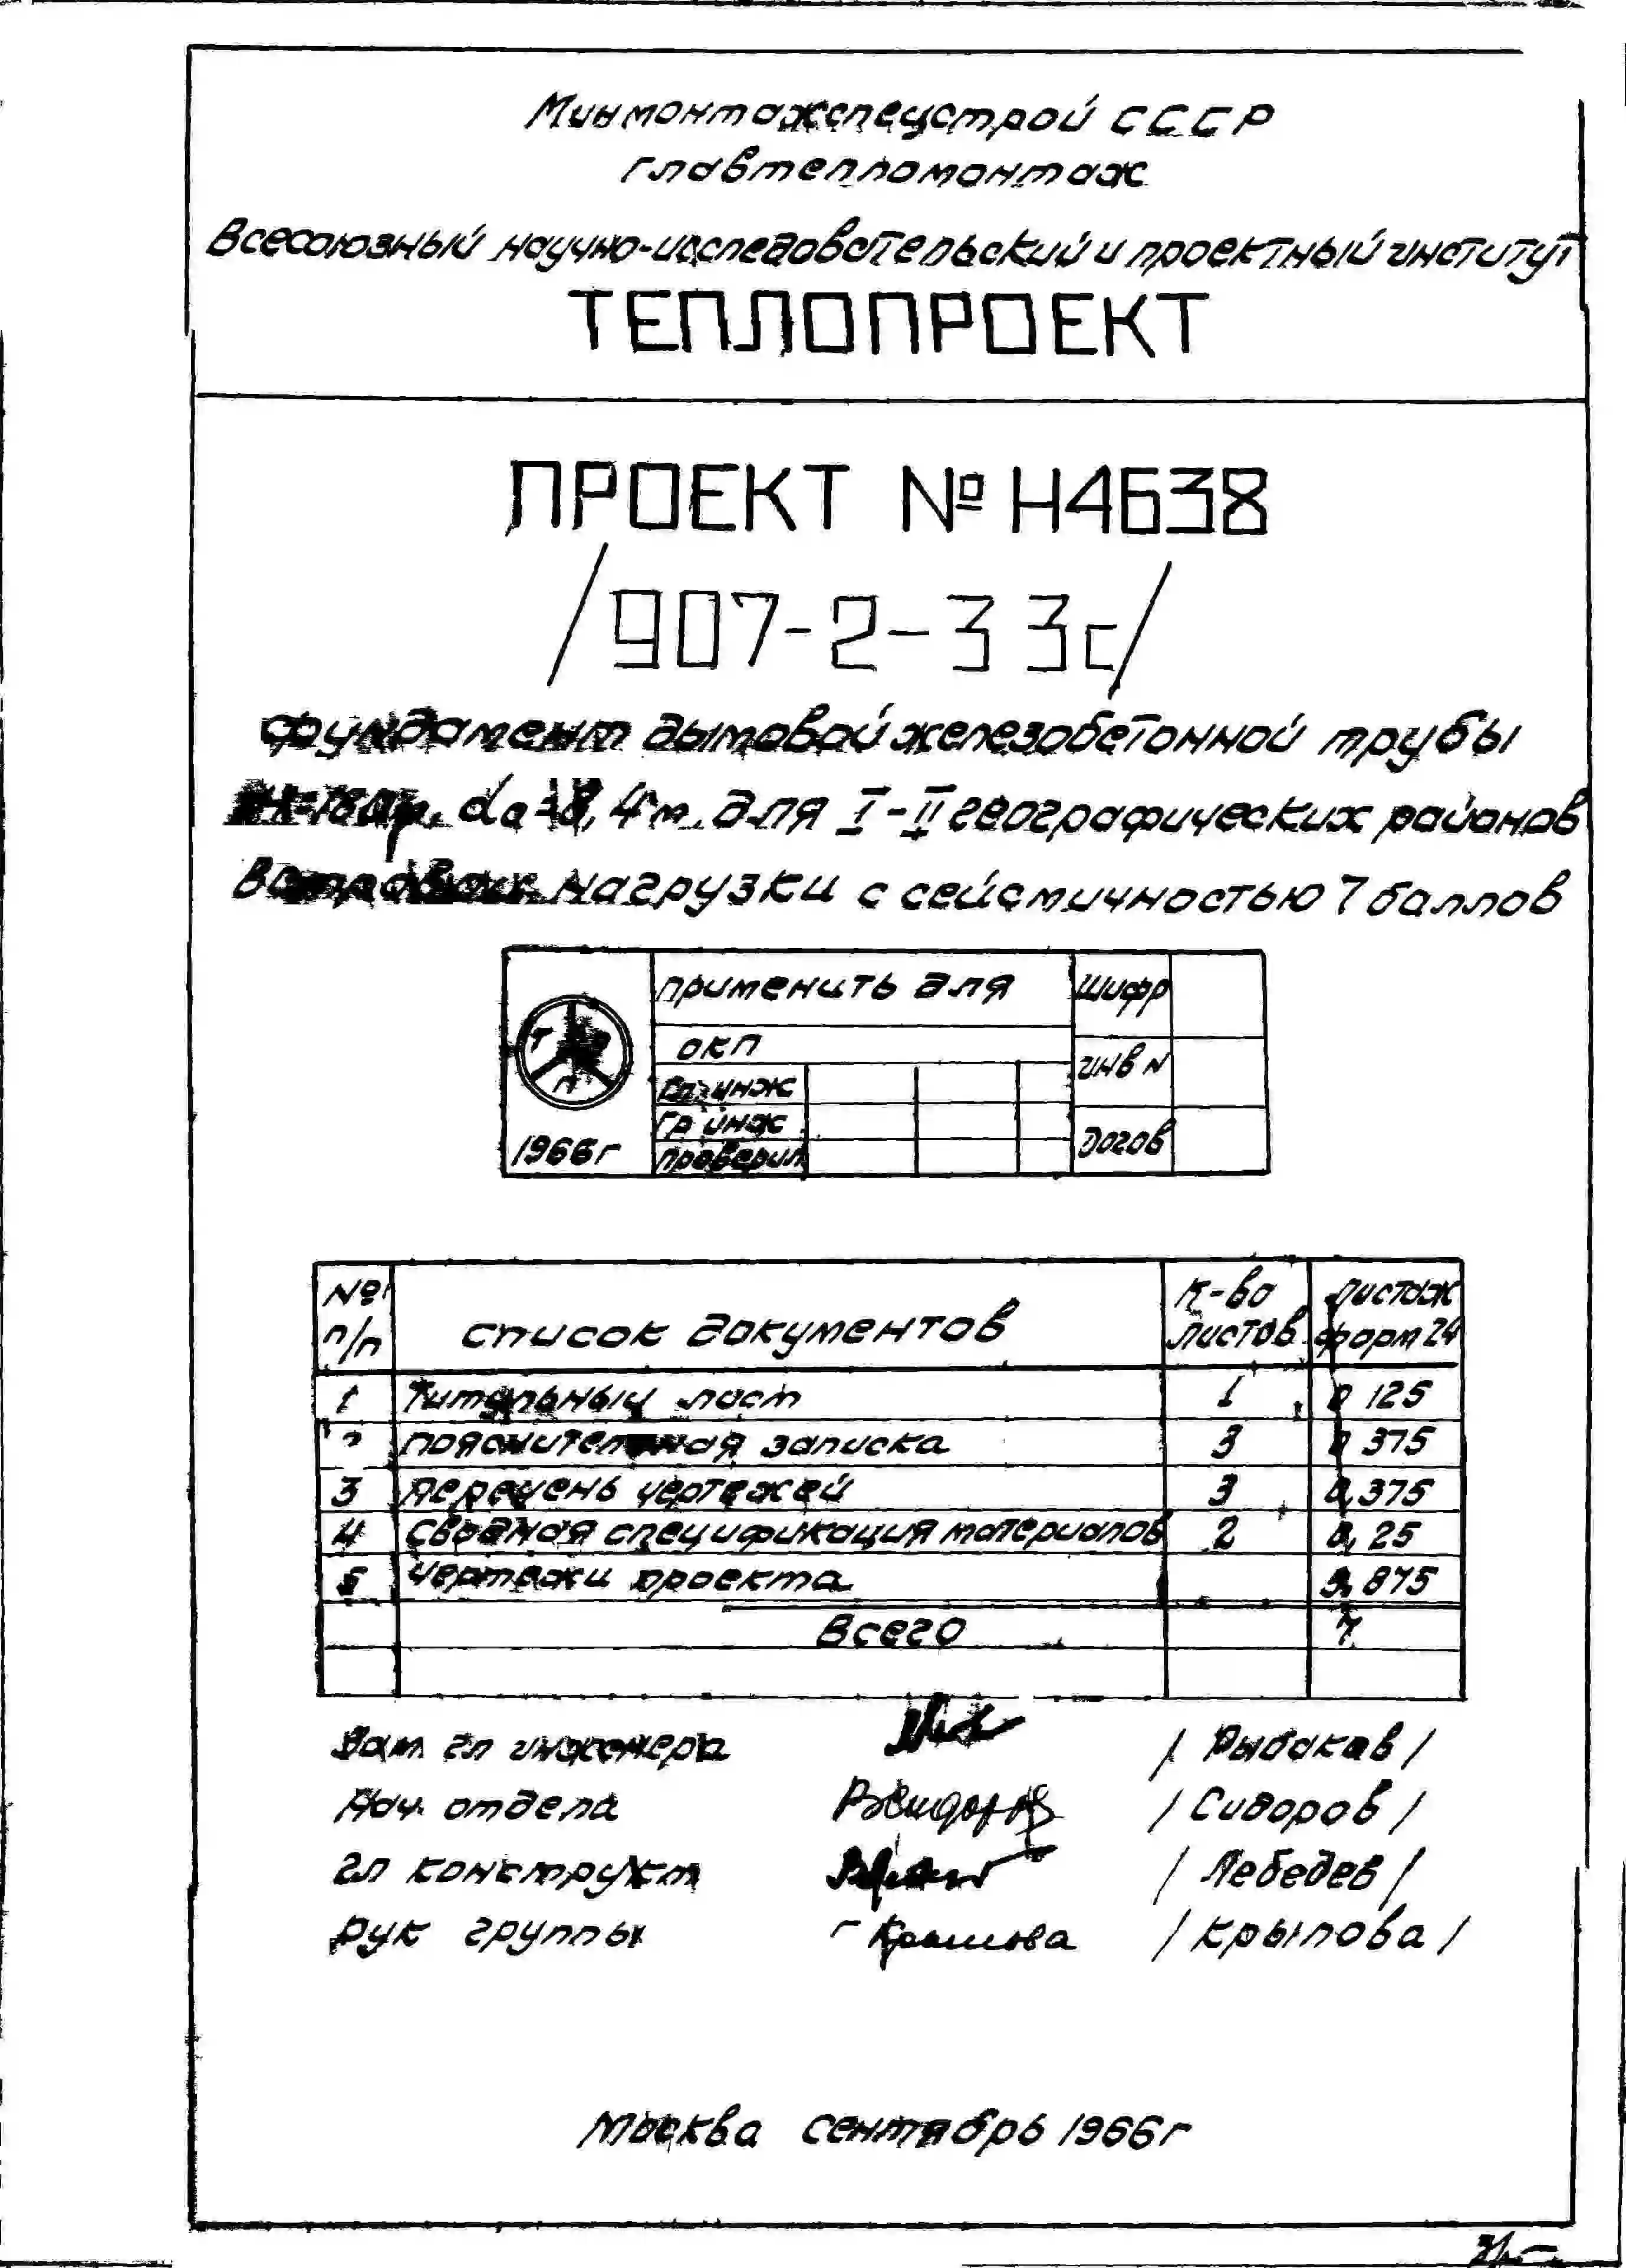 Минмонтажспецстрой СССР
главтепломонтаж
Всесоюзный научно-исследовательский и проектный институт
ТЕПЛОПРОЕКТ
ПРОЕКТ № Н4638
/907-2-33с/
фундамент дымовой железобетонной трубы
для I-II географических районов
нагрузки с сейсмичностью 7 баллов
применить для
Шифр
ОКП
инв N
Гл инж
Гр инж
Догов
проверил
Т П
1966г
№ п/п список документов к-во листов листаж форм 24
1 Титульный лист 1 0 125
2 пояснительная записка 3 0 375
3 перечень чертежей 3 0,375
4 сводная спецификация материалов 2 0,25
5 чертежи проекта 5,875
Всего 7
Зам гл инженера /Рыбаков/
Нач. отдела /Сидоров/
гл конструкт /Лебедев/
рук группы г Крылова /Крылова/
Москва сентябрь 1966г